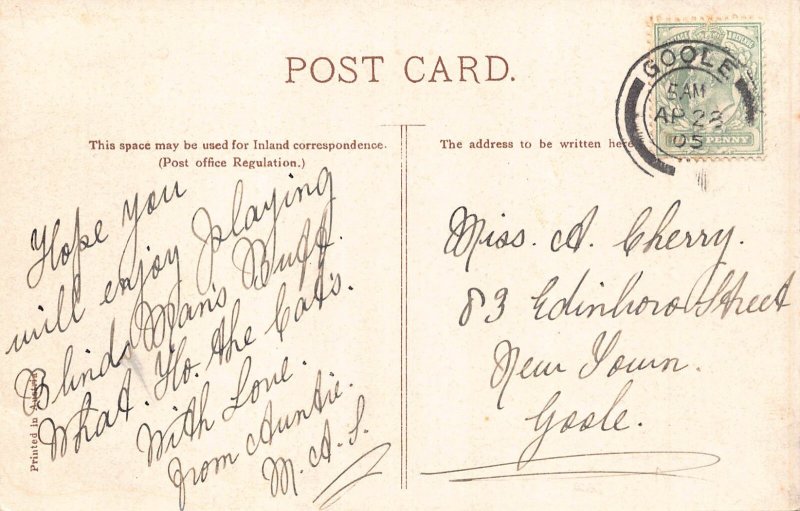 POST CARD.
This space may be used for Inland correspondence.
(Post office Regulation.)
The address to be written here
GOOLE
5 AM
AP 23
05
PENNY
Hope you
will enjoy playing
Blind Man's Buff.
What. Ho. the Cat's.
With Love.
from Auntie.
M. A. S.
Miss. A. Cherry.
83 Edinboro Street
New Town.
Goole.
Printed in